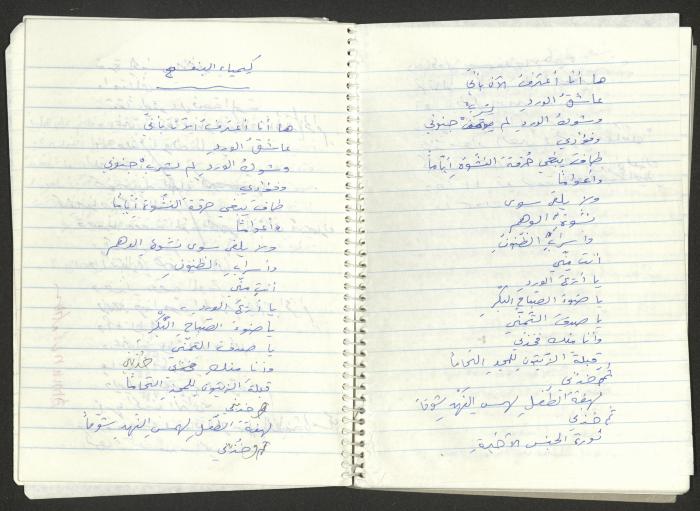 كيمياء البنفسج
ها أنا أعترفُ الآن بأنّي
عاشقُ الورد
وشوك الوردِ لم يشرب جنوني
وفؤادي
طافَ يبغي حرقة النّشوة أيّاماً
وأعواماً
ولا يلقى سوى نشوةِ الوهمِ
وأسرابِ الظنونِ
أنتِ منّي
يا أريجَ الوردِ
يا ضوءَ الصّباحِ البِكْرِ
يا صدقَ التّمنّي
وأنا منك فخذني خُذني
قبلة الزيتون للمجدِ التحاماً
خذني
لهفةَ الطّفلِ لهمسِ النّهدِ شوقاً
وخُذني
ها أنا أعترفُ الآن بأنّي
عاشقُ الوردِ
وشوك الوردِ لم يشرب جنوني
وفؤادي
طافَ يبغي حُرقةَ النّشوةِ أيّاماً
وأعواماً
ولا يلقى سوى
نشوةِ الوهم
وأسرابِ الظّنونِ
أنتَ منّي
يا أريجَ الوردِ
يا ضوءَ الصّباحِ البِكْرِ
يا صدقَ التّمنّي
وأنا منك فخذني
قبلة الزّيتونِ للمجدِ التحاماً
ثم خذني
لهفةَ الطّفلِ لهمسِ النّهدِ شوقاً
ثم خذني
ثورةَ الحبس الأخيرةِ